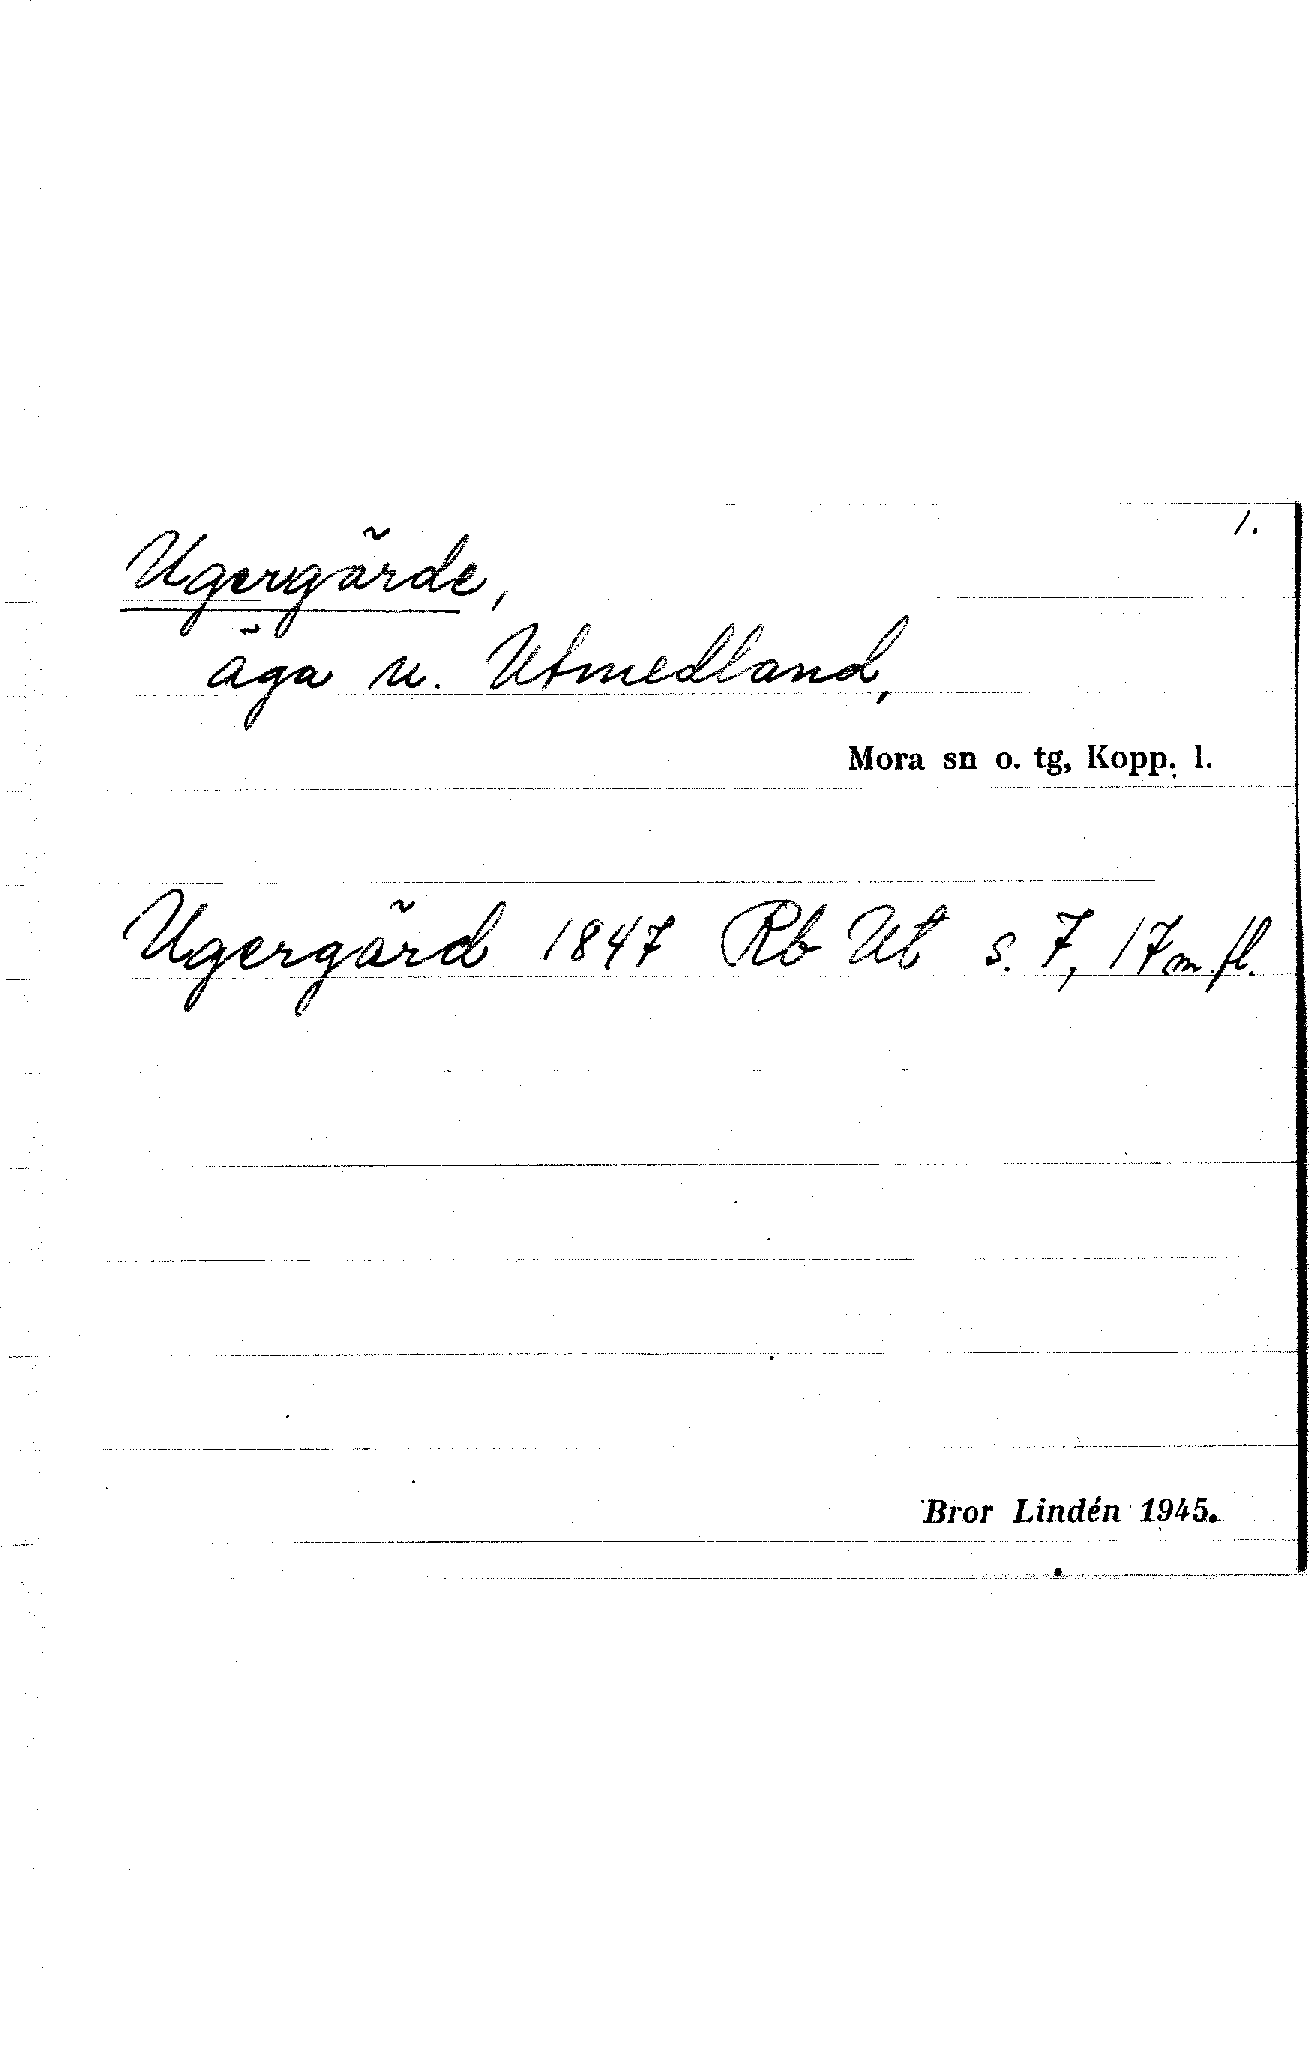 1.
Ugergärde,
äga u. Utmedland,
Mora sn o. tg, Kopp. l.
Ugergärd 1847 Rb Ut s. 7, 17 m. fl.
Bror Lindén 1945.